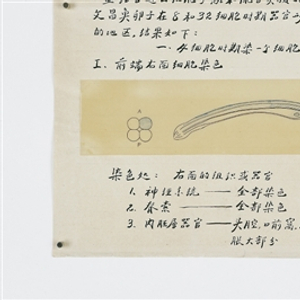 文昌鱼卵子在8和32细胞时期器官予
的地区。结果如下:
一. 4细胞时期染一个细胞
I. 前端右面细胞染色
A
染色处: 右面的组织或器官
1. 神经系统 —— 全部染色
2. 脊索 —— 全部染色
3. 内胚层器官 —— 头腔, 口前窝,
胀大部分